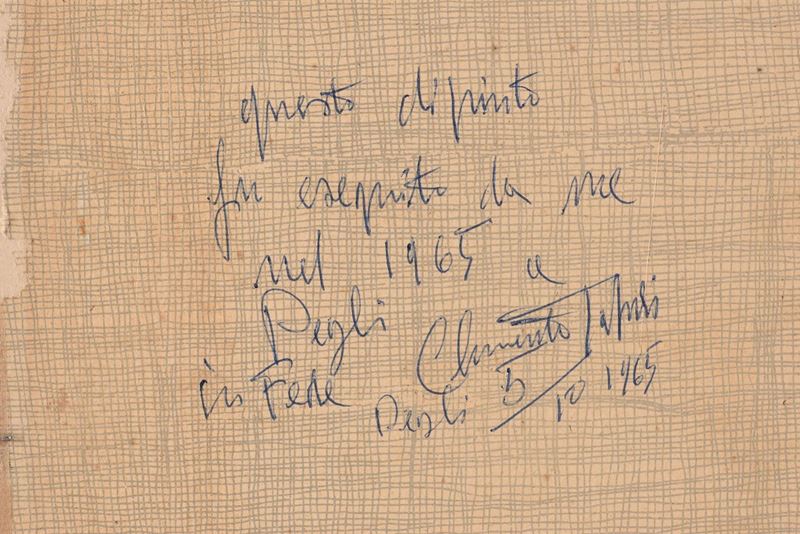 questo dipinto
fu eseguito da me
nel 1965 a
Pegli
in Fede
Clemente Tafuri
Pegli 5 10 1965